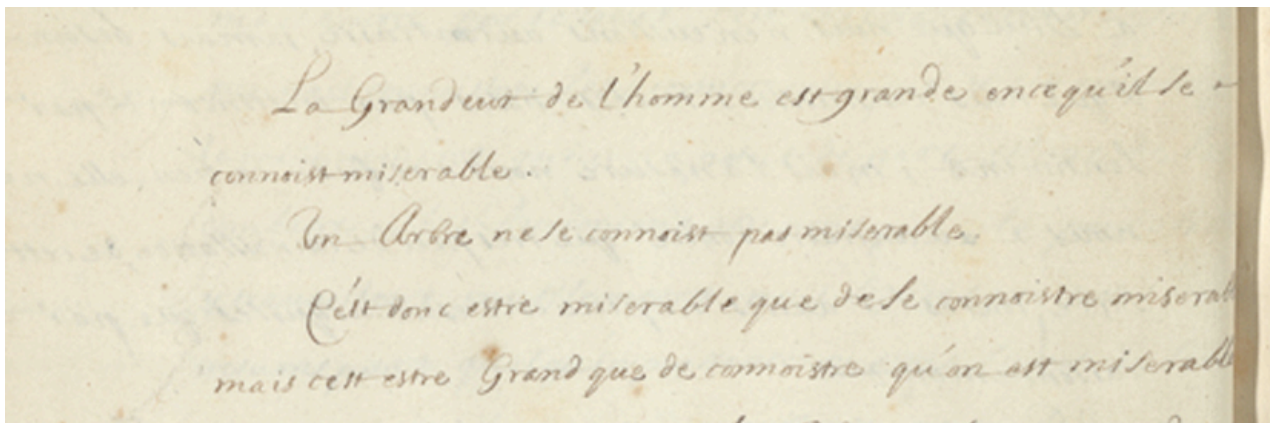 La Grandeur de l'homme est grande en ce qu'il se
connoist miserable.
Un Arbre ne se connoist pas miserable.
C'est donc estre miserable que de se connoistre miserabl
mais cest estre Grand que de connoistre qu'on est miserabl